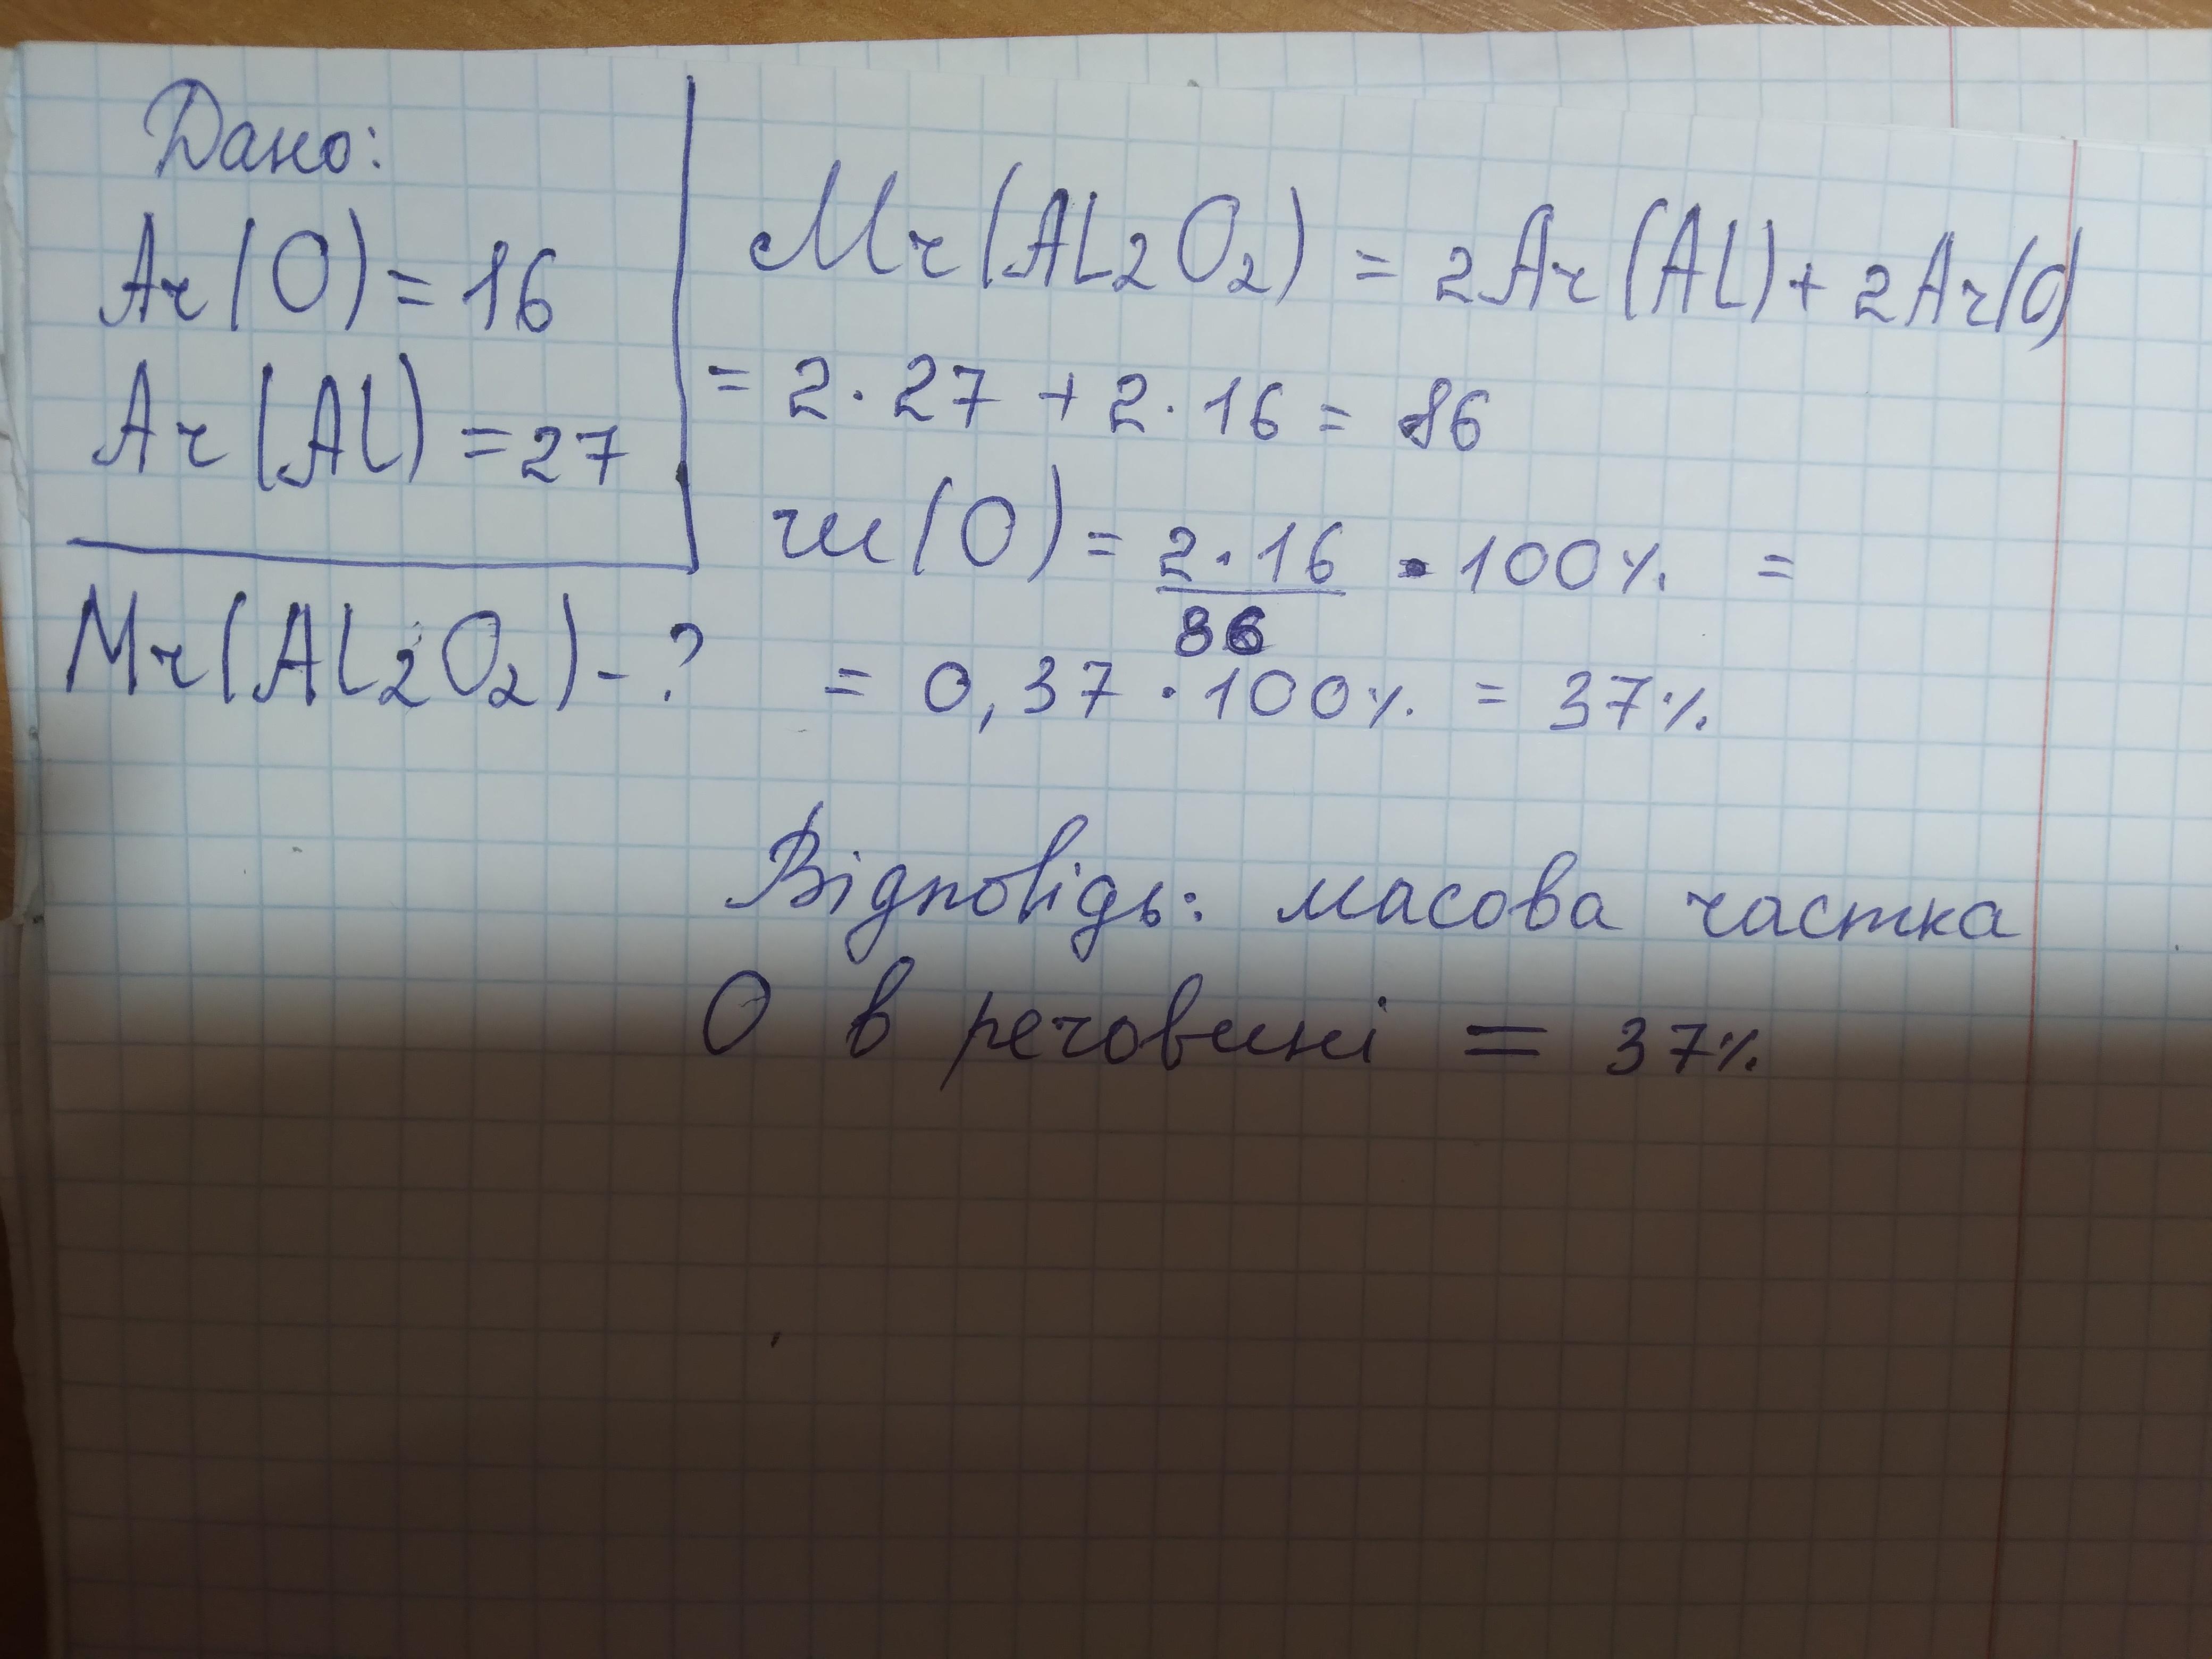 Дано:
Ar(O) = 16
Ar(Al) = 27
Mr(Al₂O₂) - ?
Mr(Al₂O₂) = 2Ar(Al) + 2Ar(O)
= 2·27 + 2·16 = 86
ш(O) = 2·16/86 · 100% =
= 0,37 · 100% = 37%
Відповідь: масова частка
O в речовині = 37%